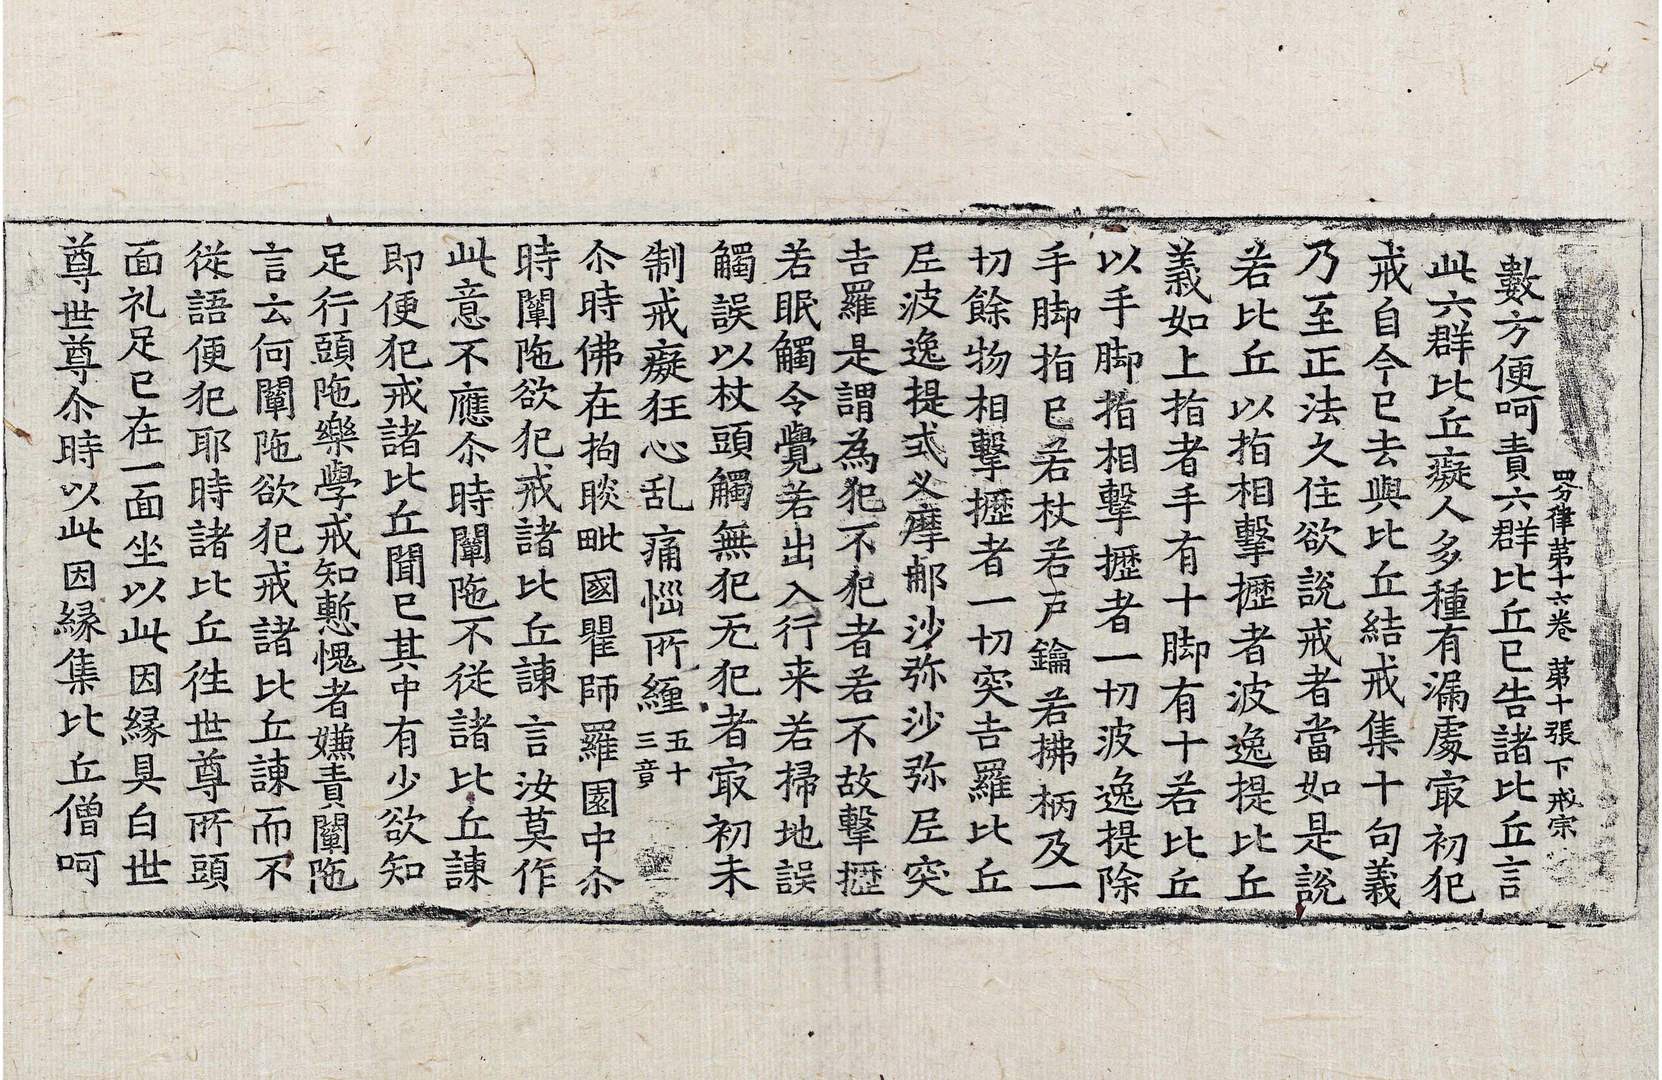 四分律第十六卷 第十張 下 戒宗
數方便呵責六群比丘已告諸比丘言
此六群比丘癡人多種有漏處㝡初犯
戒自今已去與比丘結戒集十句義
乃至正法久住欲說戒者當如是說
若比丘以指相擊攊者波逸提比丘
義如上指者手有十脚有十若比丘
以手脚指相擊攊者一切波逸提除
手脚指已若杖若戶鑰若拂柄及一
切餘物相擊攊者一切突吉羅比丘
尼波逸提式叉摩那沙弥沙弥尼突
吉羅是謂為犯不犯者若不故擊攊
若眠觸令覺若出入行来若掃地誤
觸誤以杖頭觸無犯无犯者㝡初未
制戒癡狂心乱痛惱所纏 五十三竟
尒時佛在拘睒毗國瞿師羅園中尒
時闡陁欲犯戒諸比丘諫言汝莫作
此意不應尒時闡陁不從諸比丘諫
即便犯戒諸比丘聞已其中有少欲知
足行頭陁樂學戒知慙愧者嫌責闡陁
言云何闡陁欲犯戒諸比丘諫而不
從語便犯耶時諸比丘徃世尊所頭
面礼足已在一面坐以此因緣具白世
尊世尊尒時以此因緣集比丘僧呵